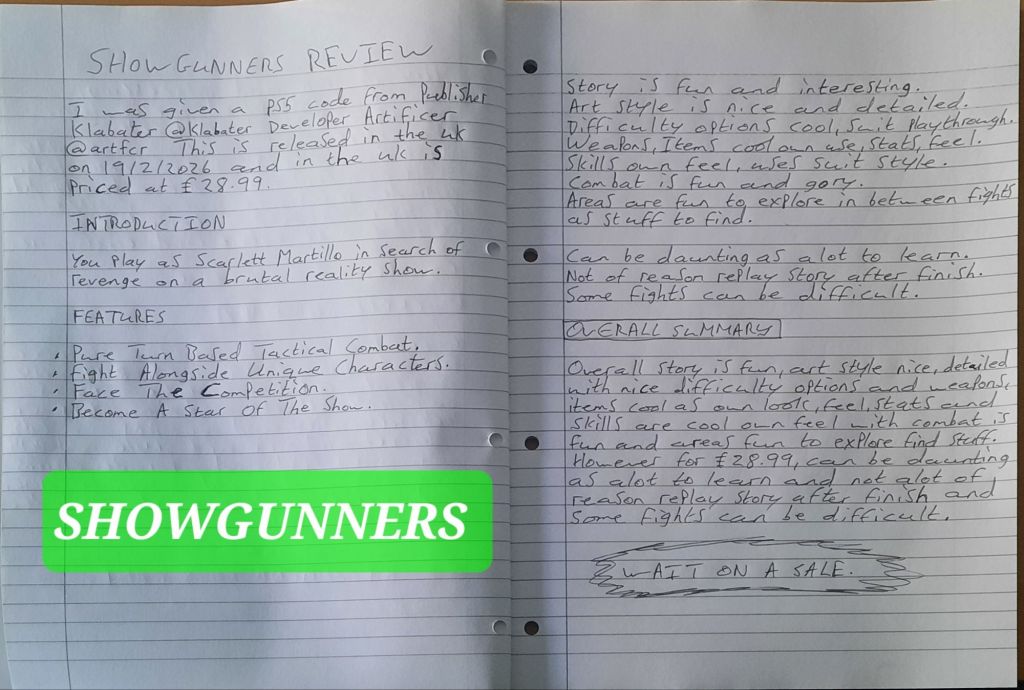 SHOWGUNNERS REVIEW
I was given a PS5 code from Publisher
Klabater @Klabater Developer Artificer
@artfcr This is released in the uk
on 19/2/2026 and in the uk is
Priced at £28.99.
INTRODUCTION
You Play as Scarlett Martillo in search of
revenge on a brutal reality show.
FEATURES
• Pure Turn Based Tactical Combat.
• Fight Alongside Unique Characters.
• Face The Competition.
• Become A Star Of The Show.
SHOWGUNNERS
Story is fun and interesting.
Art style is nice and detailed.
Difficulty options cool, suit Playthrough.
Weapons, Items cool own use, stats, feel.
Skills own feel, uses suit style.
Combat is fun and gory.
Areas are fun to explore in between fights
as stuff to find.
Can be daunting as alot to learn.
Not of reason replay story after finish.
Some fights can be difficult.
OVERALL SUMMARY
Overall story is fun, art style nice, detailed
with nice difficulty options and weapons,
items cool as own looks, feel, stats and
skills are cool own feel with combat is
fun and areas fun to explore find stuff.
However for £28.99, can be daunting
as alot to learn and not alot of
reason replay story after finish and
some fights can be difficult.
WAIT ON A SALE.